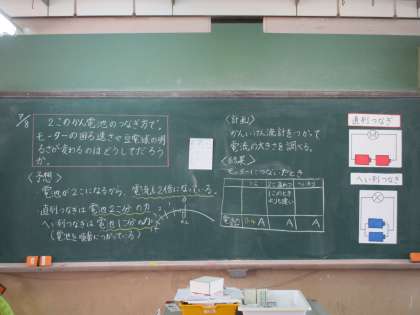 7/8
2このかん電池のつなぎ方で、
モーターの回る速さや豆電球の明
るさが変わるのはどうしてだろう
か。
〈予想〉
電池が2こになるから、電流も2倍になっている。
直列つなぎは電池2こ分の力
へい列つなぎは電池1こ分の力
(電池を順番につかっている)
〈計画〉
かんいけん流計をつかって
電流の大きさを調べる。
〈結果〉
モーターにつないだとき
1こ
1このとき
より速い
電流
A
A
A
直列つなぎ
へい列つなぎ